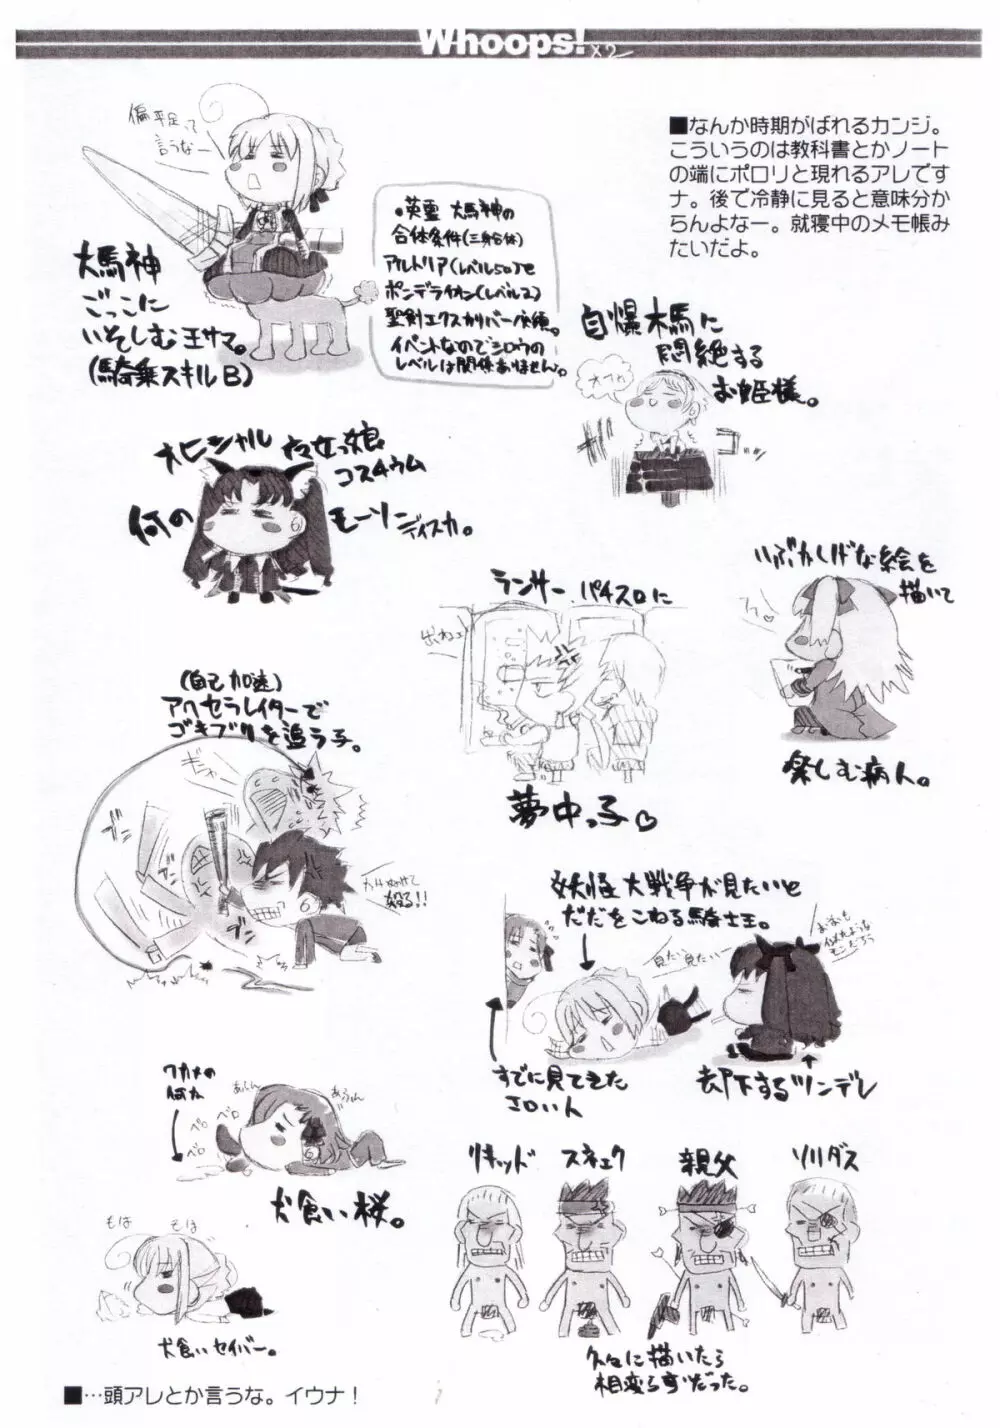 Whoops! ×2
■なんか時期がばれるカンジ。
こういうのは教科書とかノート
の端にポロリと現れるアレです
ナ。後で冷静に見ると意味分か
らんよなー。就寝中のメモ帳み
たいだよ。
偏平足って
言うなー
大馬神
ごっこに
いそしむ王サマ。
(騎乗スキルB)
・英霊 大馬神の
合体条件(三身合体)
アルトリア(レベル50)と
ポンデライオン(レベル2)
聖剣エクスカリバー
イベントなのでシロウの
レベルは関係ありません。
自爆木馬に
悶絶する
お姫様。
オフゥ
オヒシャル
コスチウム
何の
モーソン
ディスカ。
いぶかしげな絵を
描いて
フフ♡
楽しむ病人。
ランサー パチスロに
出ねェ
夢中っ子♡
(自己加速)
アクセラレイターで
ゴキブリを追う子。
殴る!!
妖怪大戦争が見たいと
だだをこねる騎士王。
見たい見たいー
すでに見てきた
エロい人
却下するツンデレ
ワカメの
何か
あふん
あふん
ペロ
ペロ
ペロ
犬食い桜。
もは
もは
犬食いセイバー。
リキッド
スネェク
親父
ソリダス
久々に描いたら
相変らずだった。
■…頭アレとか言うな。イウナ!